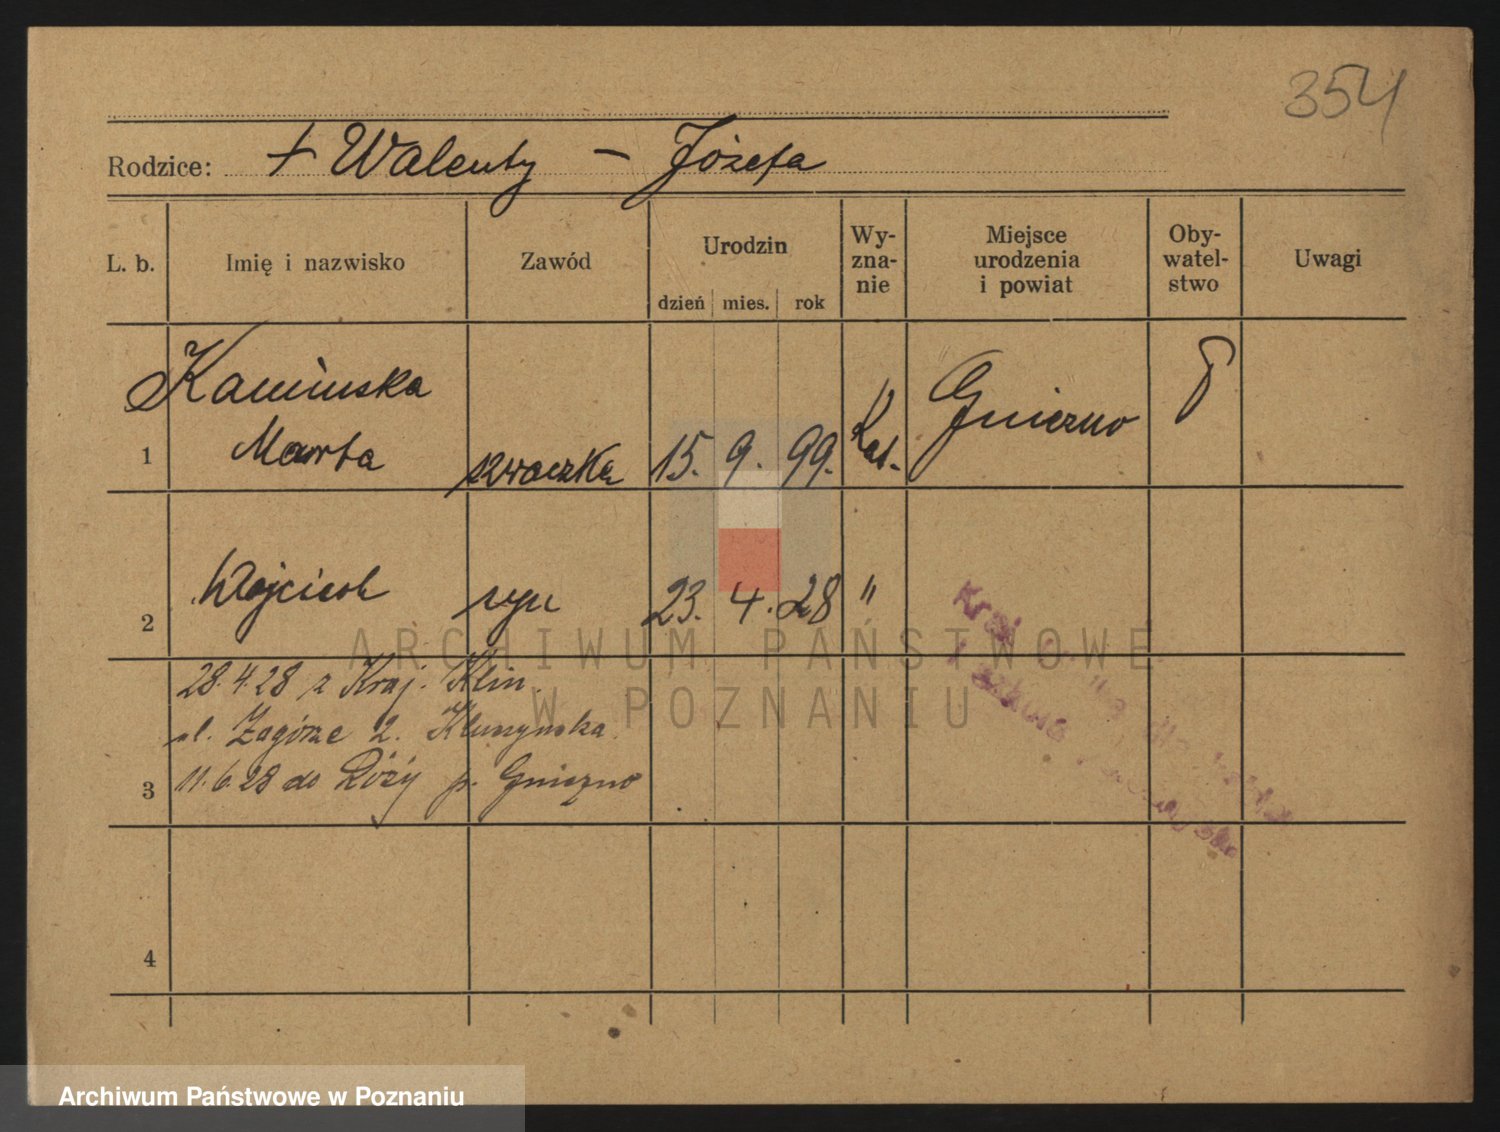 354
Rodzice: + Walenty – Józefa
L. b. Imię i nazwisko Zawód Urodzin dzień mies. rok Wy-zna-nie Miejsce urodzenia i powiat Oby-watel-stwo Uwagi
Kaminska
1 Marta szwaczka 15. 9. 99. Kat. Gniezno P
2 Wojciech syn 23. 4. 28 "
Kraj
28.4.28 z Kraj. Klin.
ul. Zagórze 2. Kluszynska
3 11.6.28 do Róży p. Gniezno
4
ARCHIWUM PAŃSTWOWE
W POZNANIU
Archiwum Państwowe w Poznaniu